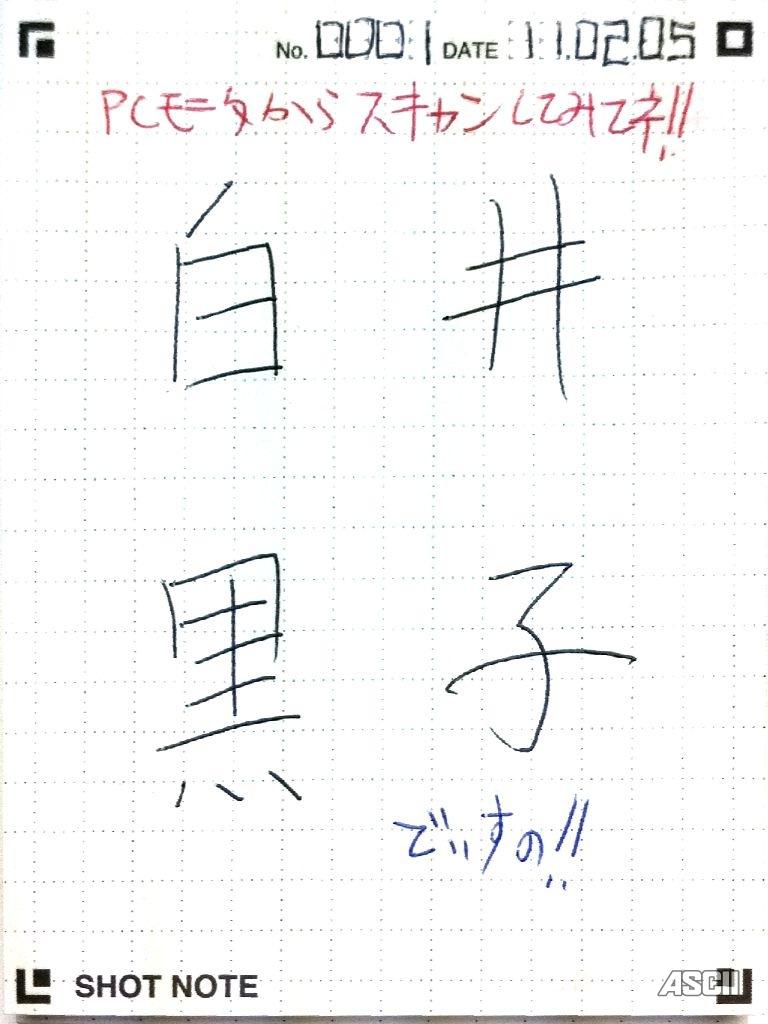 No. 0001 DATE 11.02.05
PCモニタからスキャンしてみてネ!!
白井
黒子
でいすの!!
SHOT NOTE
ASCII